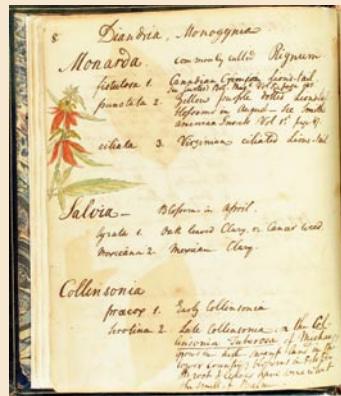 8 Diandria, Monogynia
Monarda. commonly called Rignum
fistulosa 1. Canadian Crimson Lion's-tail
punctata 2. Yellow purple dotted
blossoms in August — See Smith's
american Insects Vol 1st page
ciliata 3. Virginian ciliated Lions-tail
Salvia — Blossoms in April.
lyrata 1. Oak leaved Clary, or Cancer weed.
Mexicana 2. Mexican Clary.
Collinsonia
præcox 1. Early Collinsonia
serotina 2. Late Collinsonia, or the Col-
linsonia Tuberosa of Michaux
grows in rich swamp land in the
lower country, blossoms in